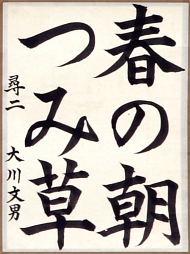 春の朝
つみ草
尋二 大川文男